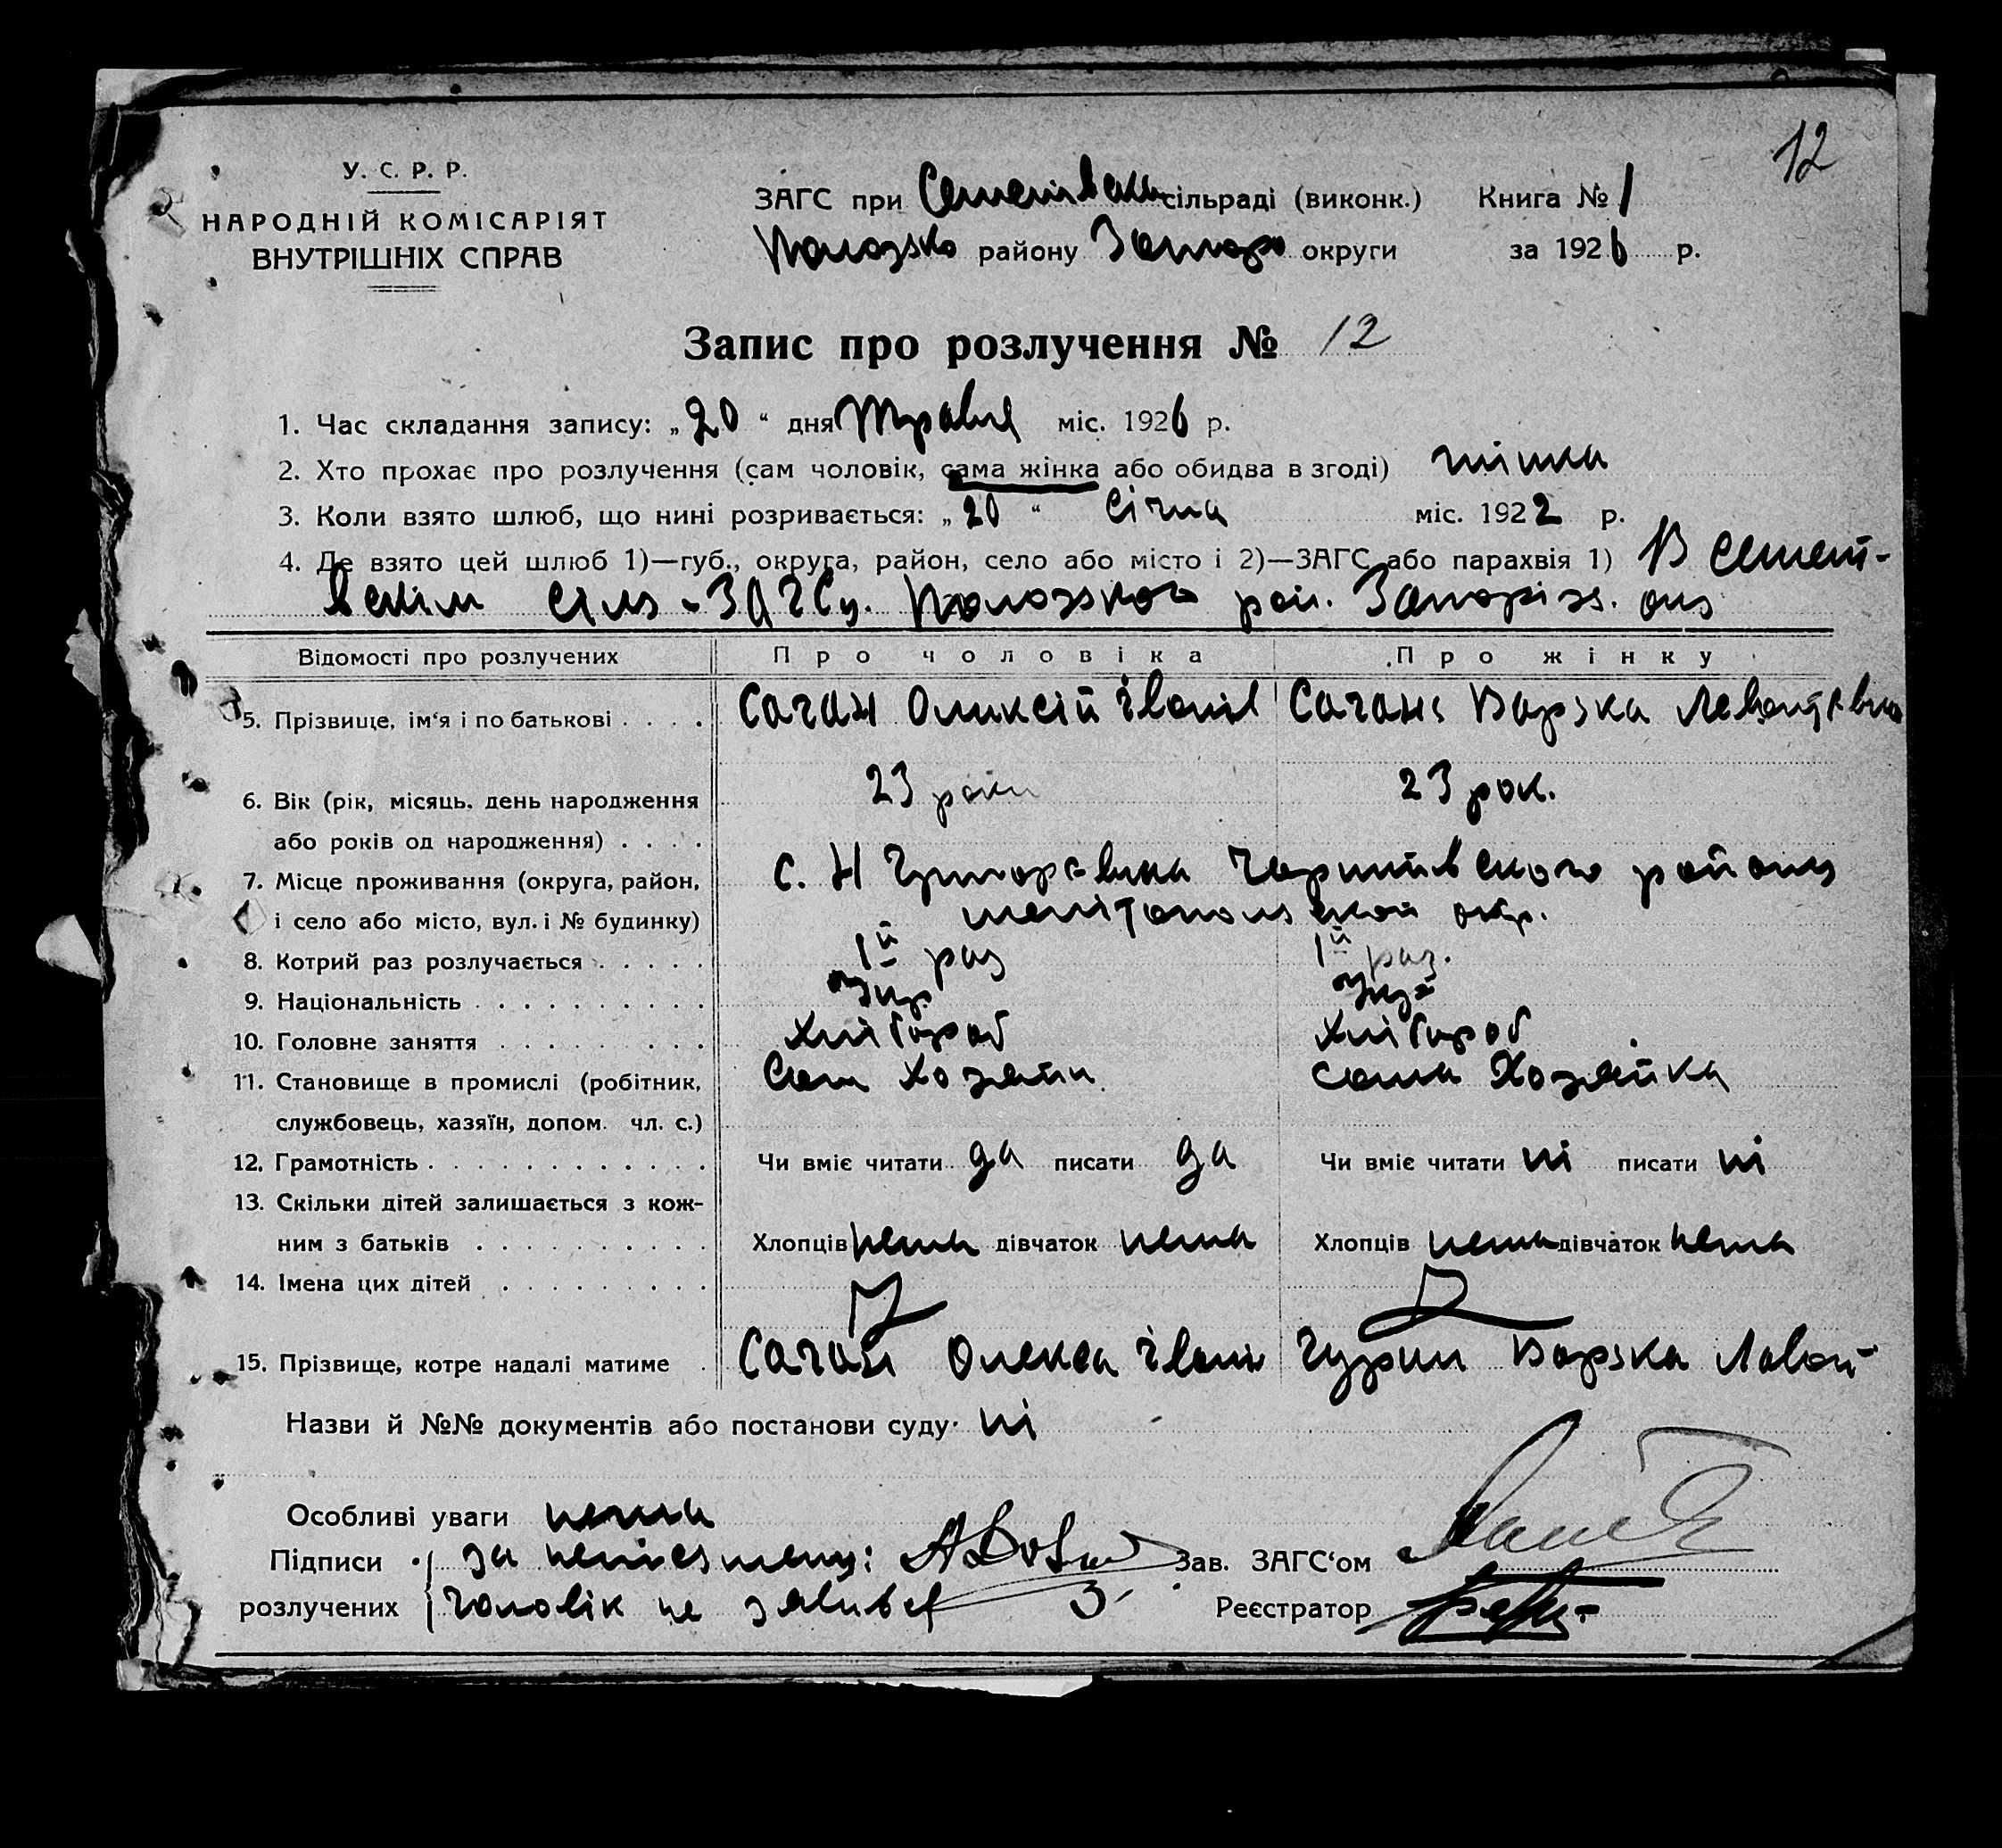 12
У. С. Р. Р.
НАРОДНІЙ КОМІСАРІЯТ
ВНУТРІШНІХ СПРАВ
ЗАГС при Семенівскій сільраді (виконк.) Книга № 1
Пологзско району Запоро округи за 1926 р.
Запис про розлучення № 12
1. Час складання запису: „20“ дня Травня міс. 1926 р.
2. Хто прохає про розлучення (сам чоловік, сама жінка або обидва в згоді) жінка
3. Коли взято шлюб, що нині розривається: „20“ Січня міс. 1922 р.
4. Де взято цей шлюб 1)—губ., округа, район, село або місто і 2)—ЗАГС або парахвія 1) В Семен-
вскім сіль-ЗАГСу. Пологзского рай. Запоріз. окр
Відомості про розлучених Про чоловіка Про жінку
5. Прізвище, ім‘я і по батькові . . . . Саган Оликсій Іванів Сагань Варька
6. Вік (рік, місяць, день народження 23 роки 23 рок.
або років од народження) . . . .
7. Місце проживання (округа, район, с. Н Григорівка Черниівского району
і село або місто, вул. і № будинку) мелітопольской окр.
8. Котрий раз розлучається . . . . . 1й раз 1й раз.
9. Національність . . . . . . . . . . Укр Укр
10. Головне заняття . . . . . . . . . Хліборoб Хлібороб
11. Становище в промислі (робітник, Сам Хозяин. сама Хозяйка
службовець, хазяїн, допом. чл. с.)
12. Грамотність . . . . . . . . . . . . Чи вміє читати да писати да Чи вміє читати ні писати ні
13. Скільки дітей залишається з кож-
ним з батьків . . . . . . . . . . Хлопців нема дівчаток нема Хлопців нема дівчаток нема
14. Імена цих дітей . . . . . . . . .
15. Прізвище, котре надалі матиме . Саган Олекса Іванів Гурин Варька Лавон-
Назви й №№ документів або постанови суду ні
Особливі уваги нема
Підписи за неписмену: Зав. ЗАГС‘ом
розлучених чоловік не зявився Реєстратор